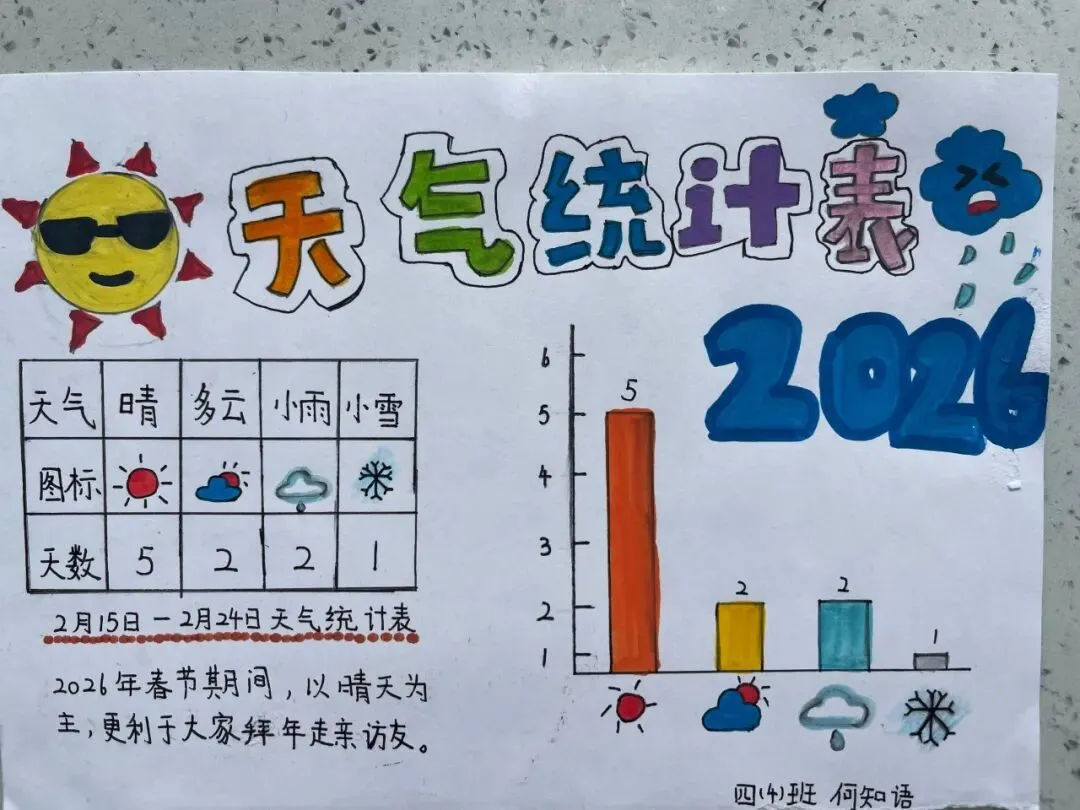 天气统计表
2026
天气 晴 多云 小雨 小雪
图标
天数 5 2 2 1
2月15日-2月24日天气统计表
2026年春节期间，以晴天为
主，更利于大家拜年走亲访友。
6
5
4
3
2
1
5
2
2
1
四(4)班 何知语